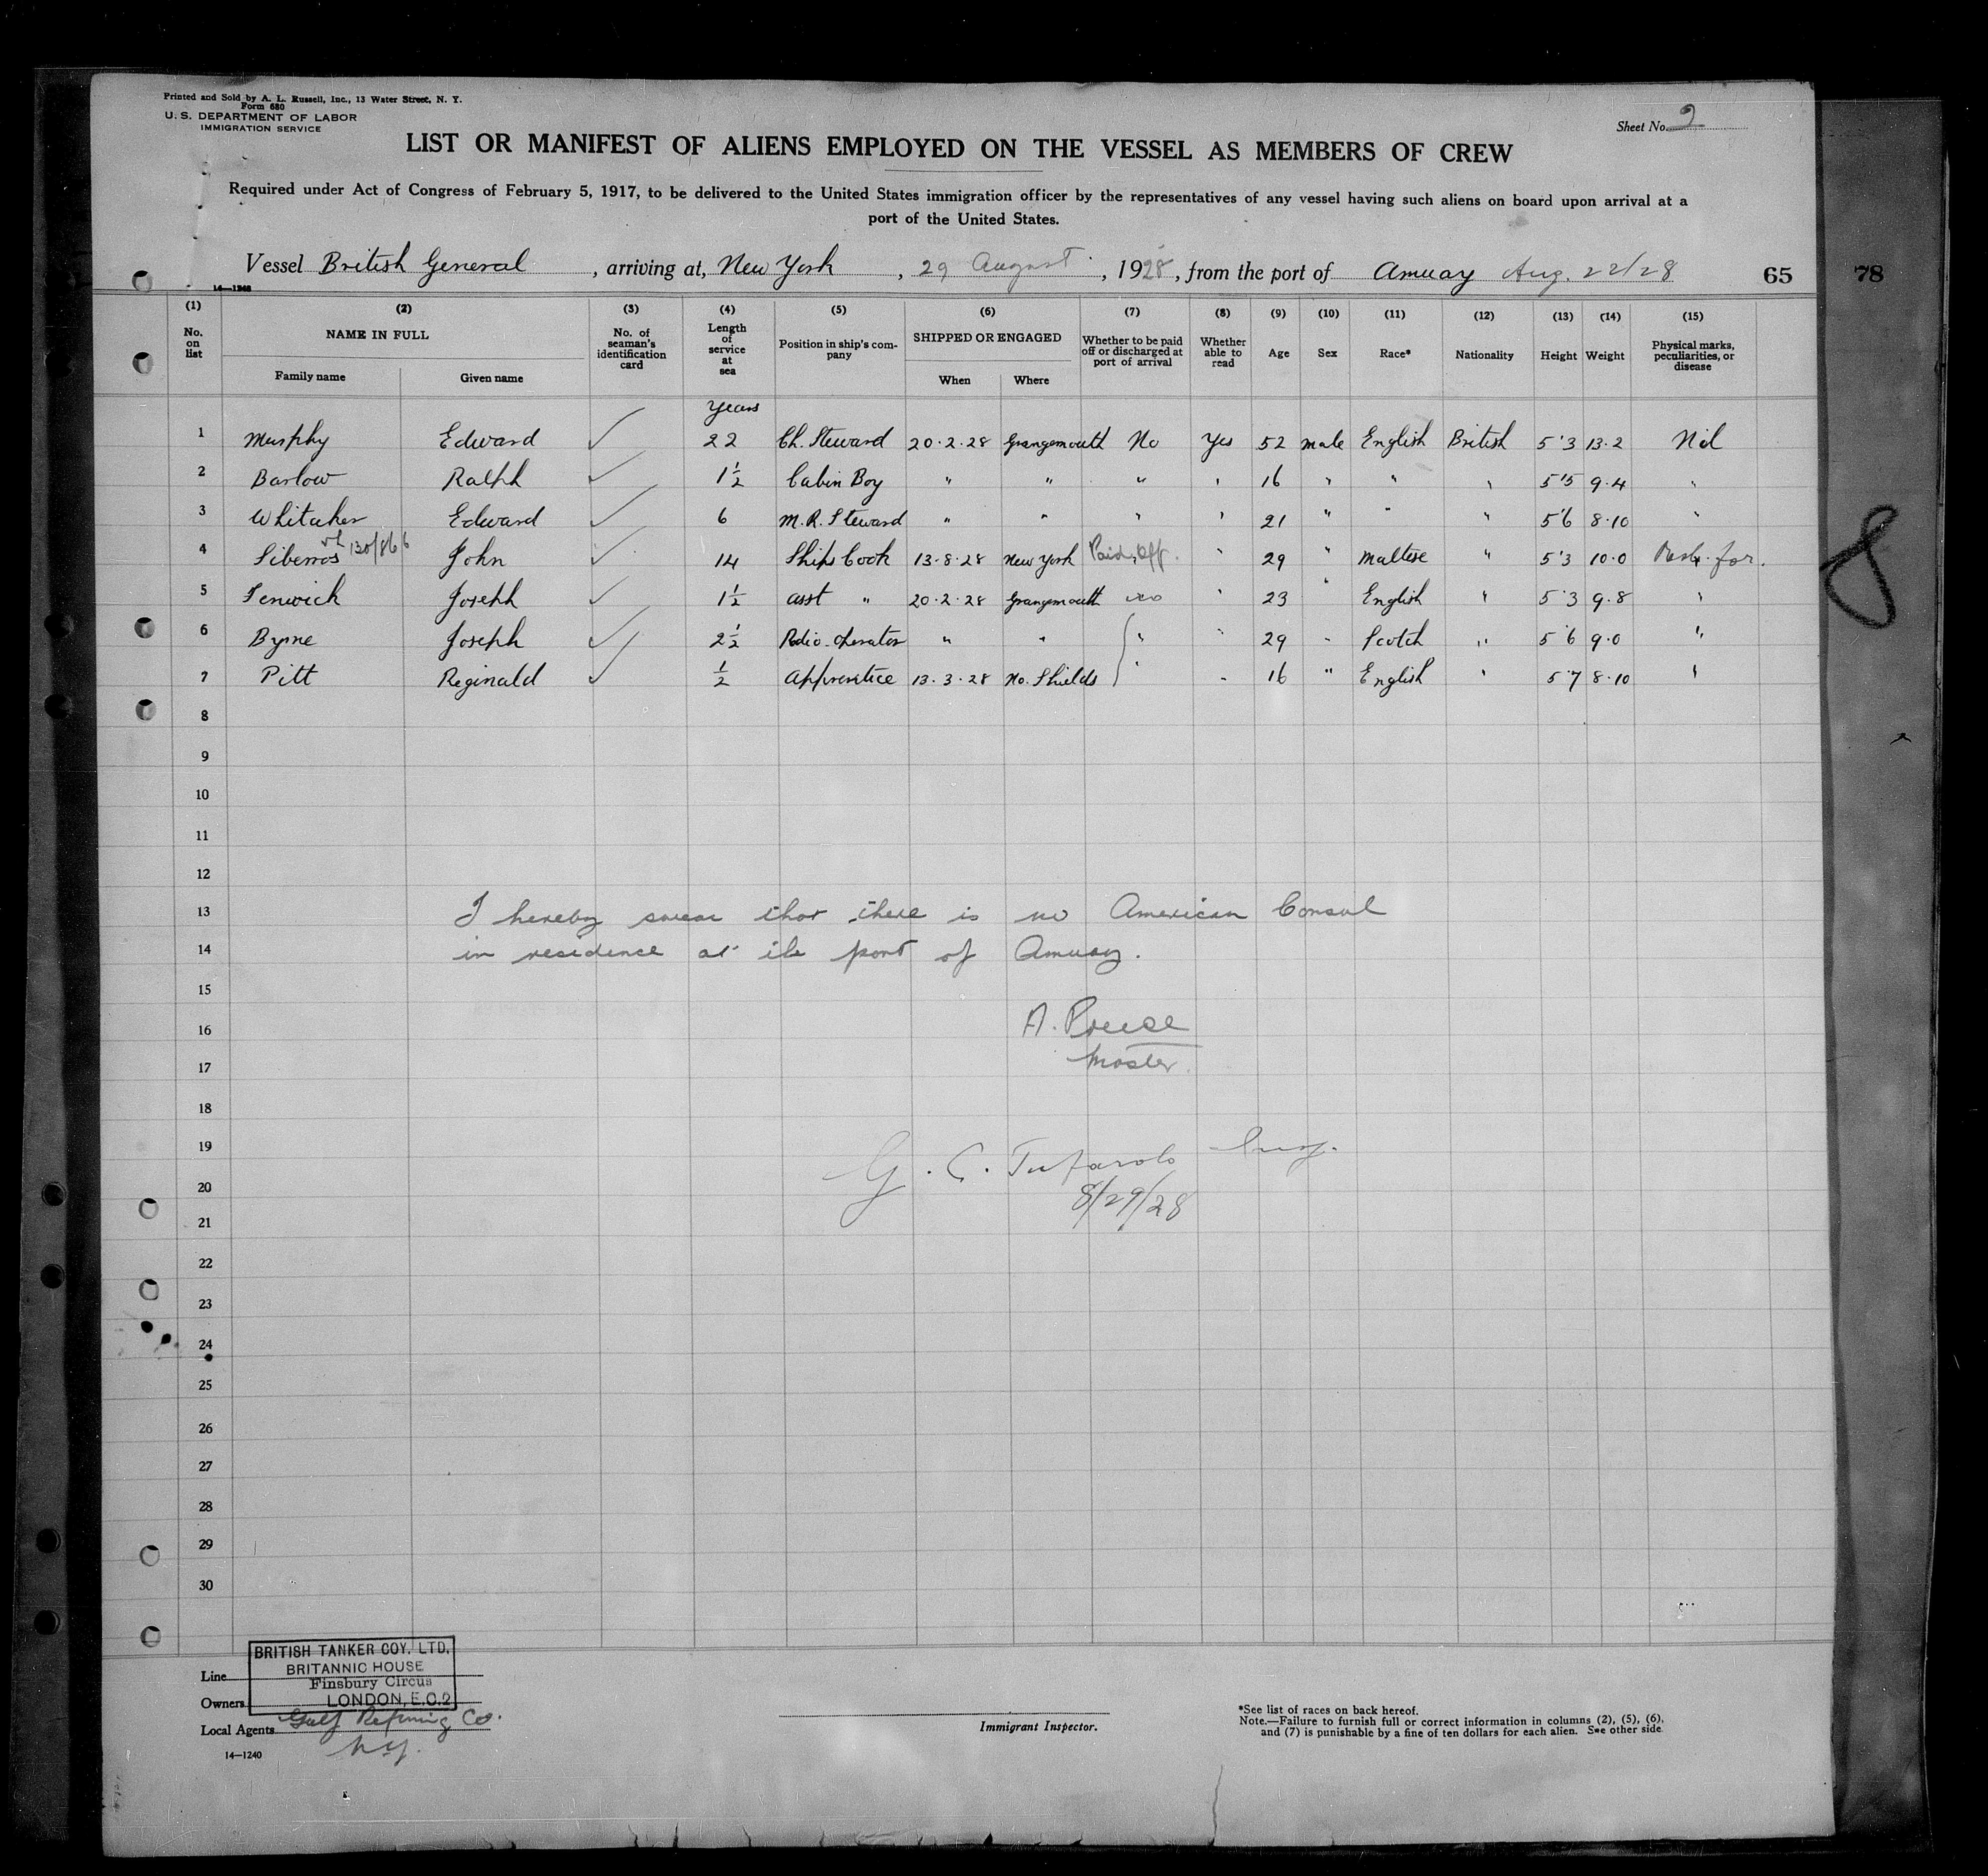 Printed and Sold by A. L. Russell, Inc., 13 Water Street, N. Y.
Form 680
U. S. DEPARTMENT OF LABOR
IMMIGRATION SERVICE
Sheet No. 2
LIST OR MANIFEST OF ALIENS EMPLOYED ON THE VESSEL AS MEMBERS OF CREW
Required under Act of Congress of February 5, 1917, to be delivered to the United States immigration officer by the representatives of any vessel having such aliens on board upon arrival at a
port of the United States.
Vessel British General , arriving at, New York , 29 August , 1928, from the port of Amuay Aug. 22/28 65 78
14—1240
(1) (2) (3) (4) (5) (6) (7) (8) (9) (10) (11) (12) (13) (14) (15)
No. on list NAME IN FULL Family name Given name No. of seaman's identification card Length of service at sea Position in ship's company SHIPPED OR ENGAGED When Where Whether to be paid off or discharged at port of arrival Whether able to read Age Sex Race* Nationality Height Weight Physical marks, peculiarities, or disease
years
1 Murphy Edward ✓ 22 Ch. Steward 20.2.28 Grangemouth No Yes 52 male English British 5'3 13.2 Nil
2 Barlow Ralph ✓ 1½ Cabin Boy " " " " 16 " " " 5'5 9.4 "
3 Whitaker Edward ✓ 6 M.R. Steward " " " " 21 " " " 5'6 8.10 "
4 130/866 John ✓ 14 Ships Cook 13.8.28 New York Paid Off. " 29 " Maltese " 5'3 10.0
5 Fenwick Joseph ✓ 1½ asst " 20.2.28 Grangemouth no " 23 " English " 5'3 9.8 "
6 Byrne Joseph ✓ 2½ Radio. Operator " " " " 29 " Scotch " 5'6 9.0 "
7 Pitt Reginald ✓ ½ Apprentice 13.3.28 No. Shields " " 16 " English " 5'7 8.10 "
8
8
9
10
11
12
13 I hereby swear that there is no American Consul
14 in residence at the port of Amuay.
15
16 A. Preese
17 Master
18
19 G. C. Insp.
20 8/29/28
21
22
23
24
25
26
27
28
29
30
BRITISH TANKER COY. LTD.
BRITANNIC HOUSE
Finsbury Circus
LONDON, E.C.2
Line
Owners
Local Agents Gulf Refining Co.
N.Y.
14—1240
Immigrant Inspector.
*See list of races on back hereof.
Note.—Failure to furnish full or correct information in columns (2), (5), (6),
and (7) is punishable by a fine of ten dollars for each alien. See other side.